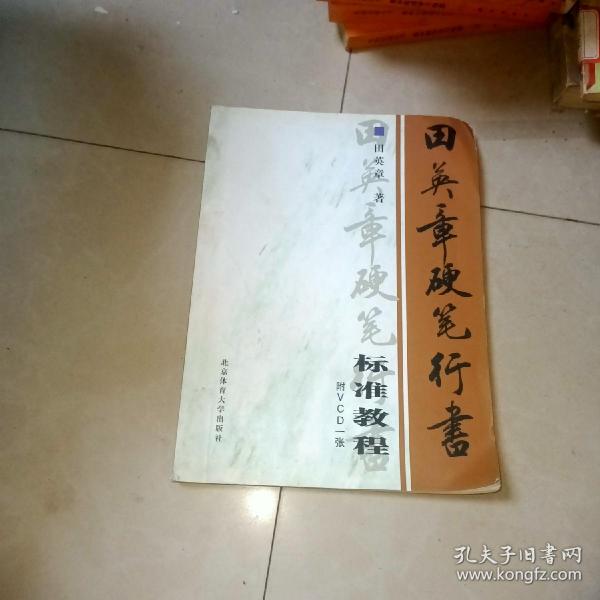 田英章硬笔行書
田英章 著
田英章硬笔行書
标准教程
附VCD一张
北京体育大学出版社
孔夫子旧書网
www.kongfz.com